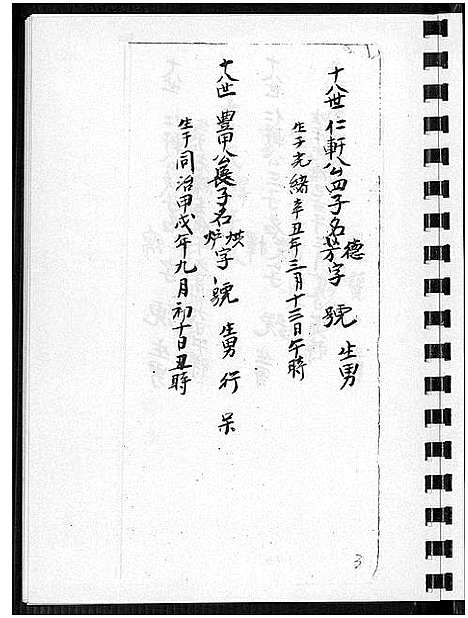 十八世 仁軒公四子名德芳字 號 生男
生于光緒辛丑年三月十三日午時
十八世 豊甲公長子名烘炉字 號 生男 行 呆
生于同治甲戌年九月初十日丑時
3